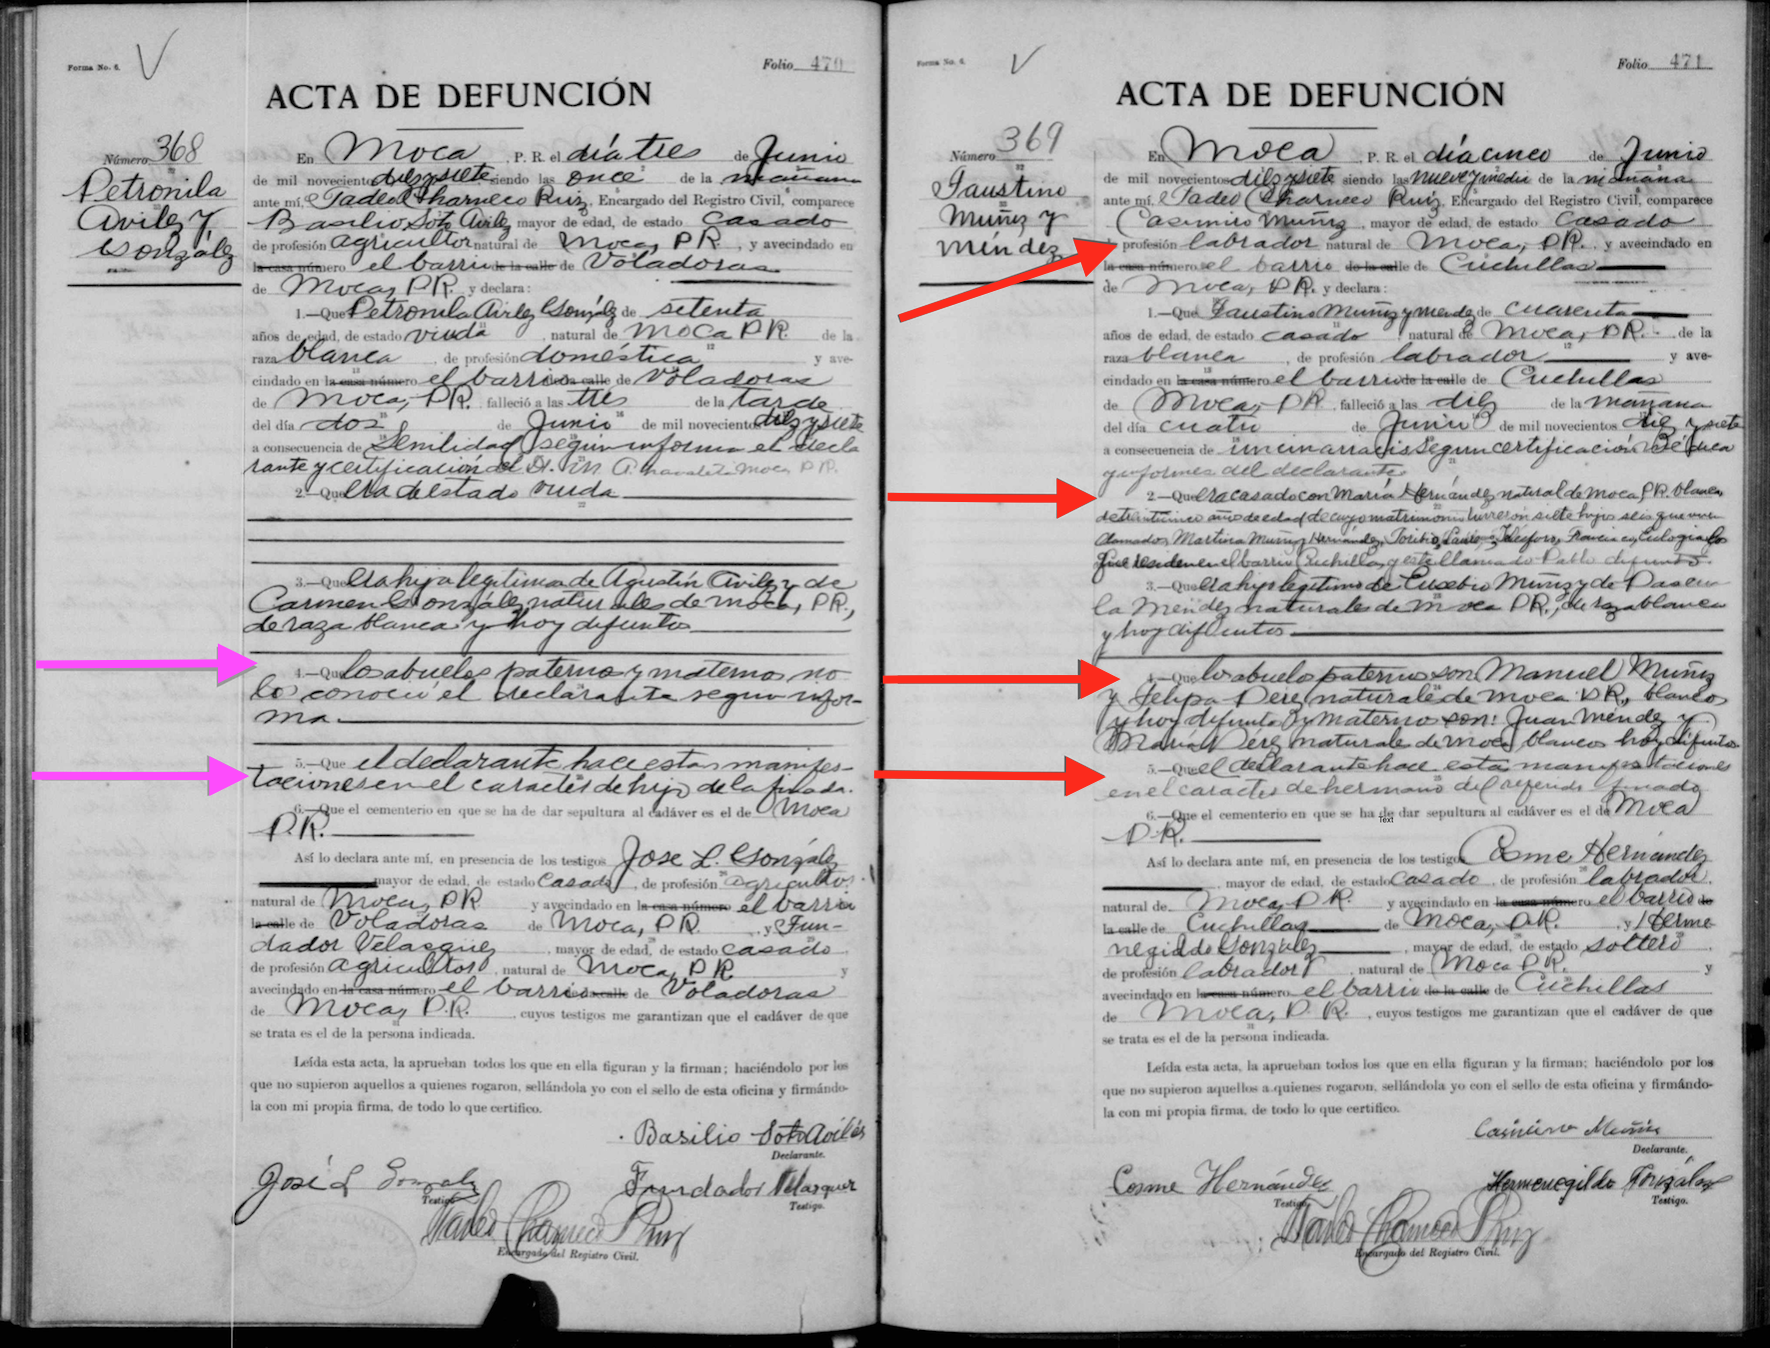 Forma No. 6.
V
Folio 470
ACTA DE DEFUNCIÓN
Número 368
Petronila
Avilez y
González
En Moca, P. R. el día tres de Junio
de mil novecientos diez y siete siendo las once de la mañana
ante mí, Tadeo Charneco Ruiz, Encargado del Registro Civil, comparece
Basilio Soto Avilez mayor de edad, de estado casado
de profesión agricultor natural de Moca, P.R., y avecindado en
la casa número el barrio de la calle de Voladoras
de Moca, P.R. y declara:
1.—Que Petronila Avilez González de setenta
años de edad, de estado viuda, natural de Moca P.R. de la
raza blanca, de profesión doméstica y ave-
cindado en la casa número el barrio de la calle de Voladoras
de Moca, P.R. falleció a las tres de la tarde
del día dos de Junio de mil novecientos diez y siete
a consecuencia de Senilidad según informa el decla
rante y certificación del Dr. Moca P.R.
2.—Que era de estado viuda
3.—Que era hija legitima de Agustín Avilez y de
Carmen González naturales de Moca, P.R.,
de raza blanca y hoy difuntos
4.—Que los abuelos paternos y maternos no
los conoció el declarante segun infor-
ma.
5.—Que el declarante hace estas manifes-
taciones en el caracter de hijo de la finada.
6.—Que el cementerio en que se ha de dar sepultura al cadáver es el de Moca
P.R.
Así lo declara ante mí, en presencia de los testigos Jose L. González
mayor de edad, de estado casado, de profesión agricultor
natural de Moca, P.R. y avecindado en la casa número el barrio
la calle de Voladoras de Moca, P.R. y Fun-
dador Velasquez, mayor de edad, de estado casado
de profesión agricultor, natural de Moca, P.R. y
avecindado en la casa número el barrio calle de Voladoras
de Moca, P.R., cuyos testigos me garantizan que el cadáver de que
se trata es el de la persona indicada.
Leída esta acta, la aprueban todos los que en ella figuran y la firman; haciéndolo por los
que no supieron aquellos a quienes rogaron, sellándola yo con el sello de esta oficina y firmándo-
la con mi propia firma, de todo lo que certifico.
Basilio Soto Avilés
Declarante.
José L Gonzalez
Testigo.
Fundador Velazquez
Testigo.
Tadeo Charneco Ruiz
Encargado del Registro Civil.
Forma No. 6.
V
Folio 471
ACTA DE DEFUNCIÓN
Número 369
Faustino
Muñiz y
Méndez
En Moca, P. R. el día cinco de Junio
de mil novecientos diez y siete siendo las nueve y media de la mañana
ante mí, Tadeo Charneco Ruiz, Encargado del Registro Civil, comparece
Casimiro Muñiz, mayor de edad, de estado casado
de profesión labrador natural de Moca, P.R., y avecindado en
la casa número el barrio de la calle de Cuchillas
de Moca, P.R. y declara:
1.—Que Faustino Muñiz y Mendez de cuarenta
años de edad, de estado casado, natural de Moca, P.R. de la
raza blanca, de profesión labrador y ave-
cindado en la casa número el barrio de la calle de Cuchillas
de Moca, P.R. falleció a las diez de la mañana
del día cuatro de Junio de mil novecientos diez y siete
a consecuencia de uncinariasis segun certificación
y informes del declarante
2.—Que era casado con María Hernández natural de Moca, P.R. blanca,
de treinticinco años de edad de cuyo matrimonio tuvieron siete hijos seis que viven
llamados Martina Muñiz Hernández, Toribio, Francisca, Eulogia los
que residen en el barrio Cuchillas y este llamado Pablo difunto.
3.—Que era hijo legitimo de Eusebio Muñiz y de Pascua
la Mendez naturales de Moca P.R., de raza blanca
y hoy difuntos.
4.—Que los abuelo paternos son Manuel Muñiz
y Felipa Perez naturales de Moca P.R., blancos
y hoy difuntos y maternos son: Juan Méndez y
María Pérez naturales de Moca blancos hoy difuntos.
5.—Que el declarante hace estas manifestaciones
en el caracter de hermano del referido finado
6.—Que el cementerio en que se ha de dar sepultura al cadáver es el de Moca
Text
P.R.
Así lo declara ante mí, en presencia de los testigos Cosme Hernández
mayor de edad, de estado casado, de profesión labrador,
natural de Moca, P.R. y avecindado en la casa número el barrio de
la calle de Cuchillas de Moca, P.R. y Herme
negildo Gonzalez, mayor de edad, de estado soltero
de profesión labrador, natural de Moca P.R. y
avecindado en la casa número el barrio de la calle de Cuchillas
de Moca, P.R., cuyos testigos me garantizan que el cadáver de que
se trata es el de la persona indicada.
Leída esta acta, la aprueban todos los que en ella figuran y la firman; haciéndolo por los
que no supieron aquellos a quienes rogaron, sellándola yo con el sello de esta oficina y firmándo-
la con mi propia firma, de todo lo que certifico.
Casimiro Muñiz
Declarante.
Cosme Hernández
Testigo.
Hermenegildo Gonzáles
Testigo.
Tadeo Charneco Ruiz
Encargado del Registro Civil.